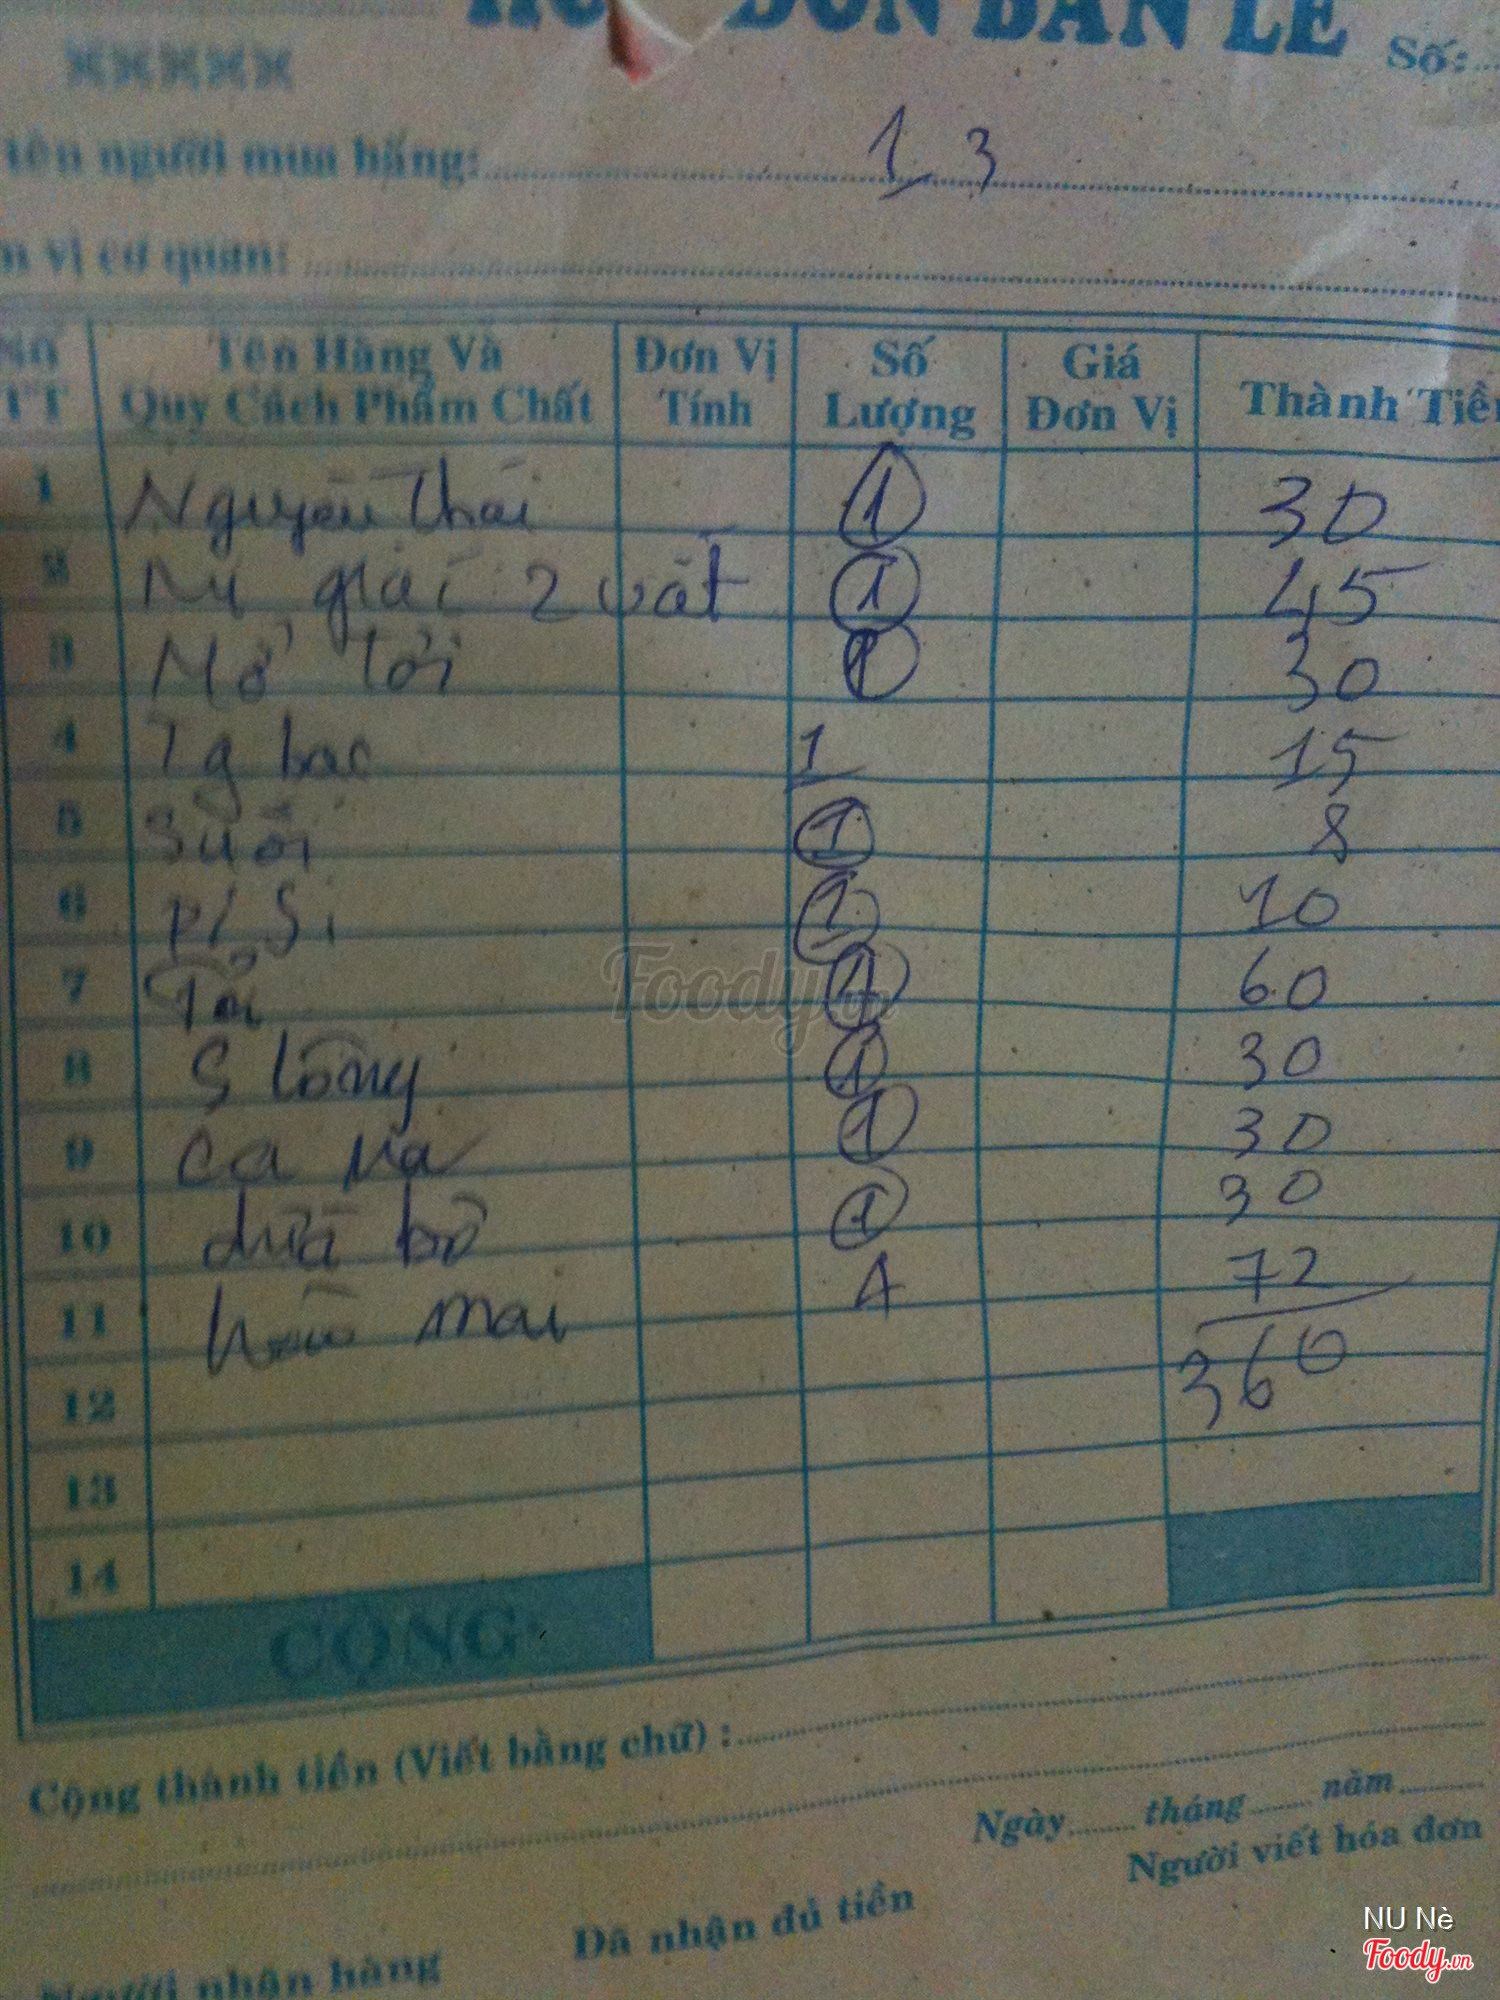 ĐƠN BÁN LẺ
Số:
xxxxx
tên người mua hàng: 13
vị cơ quan:
Số TT Tên Hàng Và Quy Cách Phẩm Chất Đơn Vị Tính Số Lượng Giá Đơn Vị Thành Tiền
1 Nguyên Thái 1 30
2 giải 2 vắt 1 45
3 Mỡ tỏi 1 30
4 Tg bạc 1 15
5 Suối 1 8
6 Si 1 10
7 Tỏi 1 60
8 S lông 1 30
9 ca na 1 30
10 dừa bò 1 30
11 mai 4 72
12 360
13
14
CỘNG
Cộng thành tiền (Viết bằng chữ) :
Ngày tháng năm
Người viết hóa đơn
Đã nhận đủ tiền
Người nhận hàng
Foody.vn
NU Nè
Foody.vn